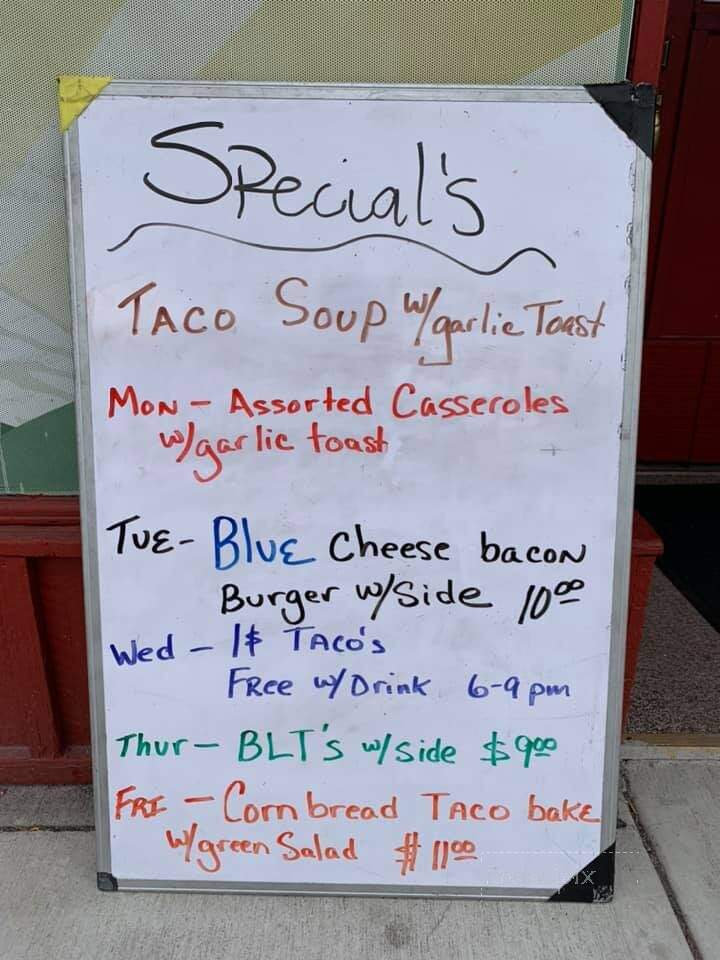 Special's
Taco Soup w/garlic Toast
Mon - Assorted Casseroles
w/garlic toast
Tue - Blue Cheese bacon
Burger w/Side 10⁰⁰
Wed - 1$ Taco's
Free w/Drink 6-9 pm
Thur - BLT's w/side $9⁰⁰
Fri - Corn bread Taco bake
w/green Salad $ 11⁰⁰